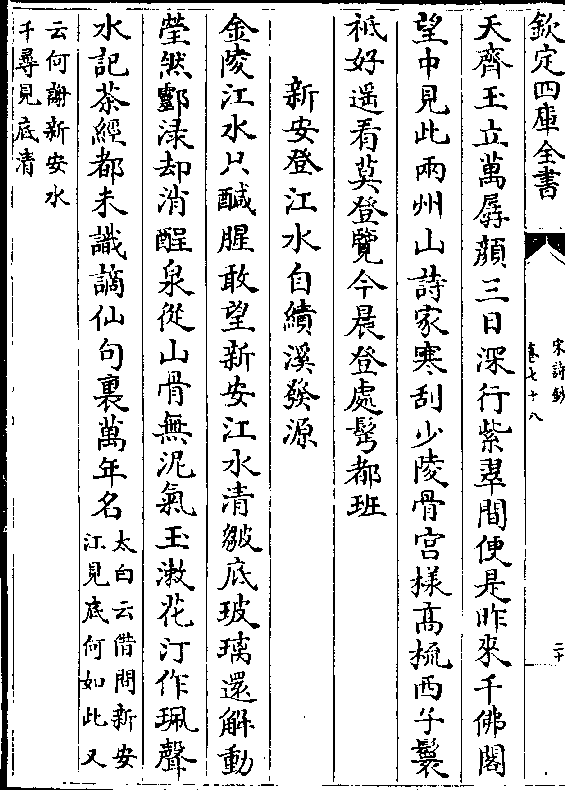 欽定四庫全書
宋詩鈔
卷七十八
二十
天齊玉立萬孱顔三日深行紫翠間便是昨來千佛閣
望中見此兩州山詩家寒刮少陵骨宫様髙梳西子鬟
祗好遥看莫登覽今晨登處髩都班
新安登江水自績溪發源
金陵江水只鹹腥敢望新安江水清皺底玻璃還解動
瑩然酃渌却消酲泉從山骨無泥氣玉漱花汀作珮聲
水記茶經都未識謫仙句裏萬年名
太白云借問新安
江見底何如此又
云何謝新安水
千尋見底清